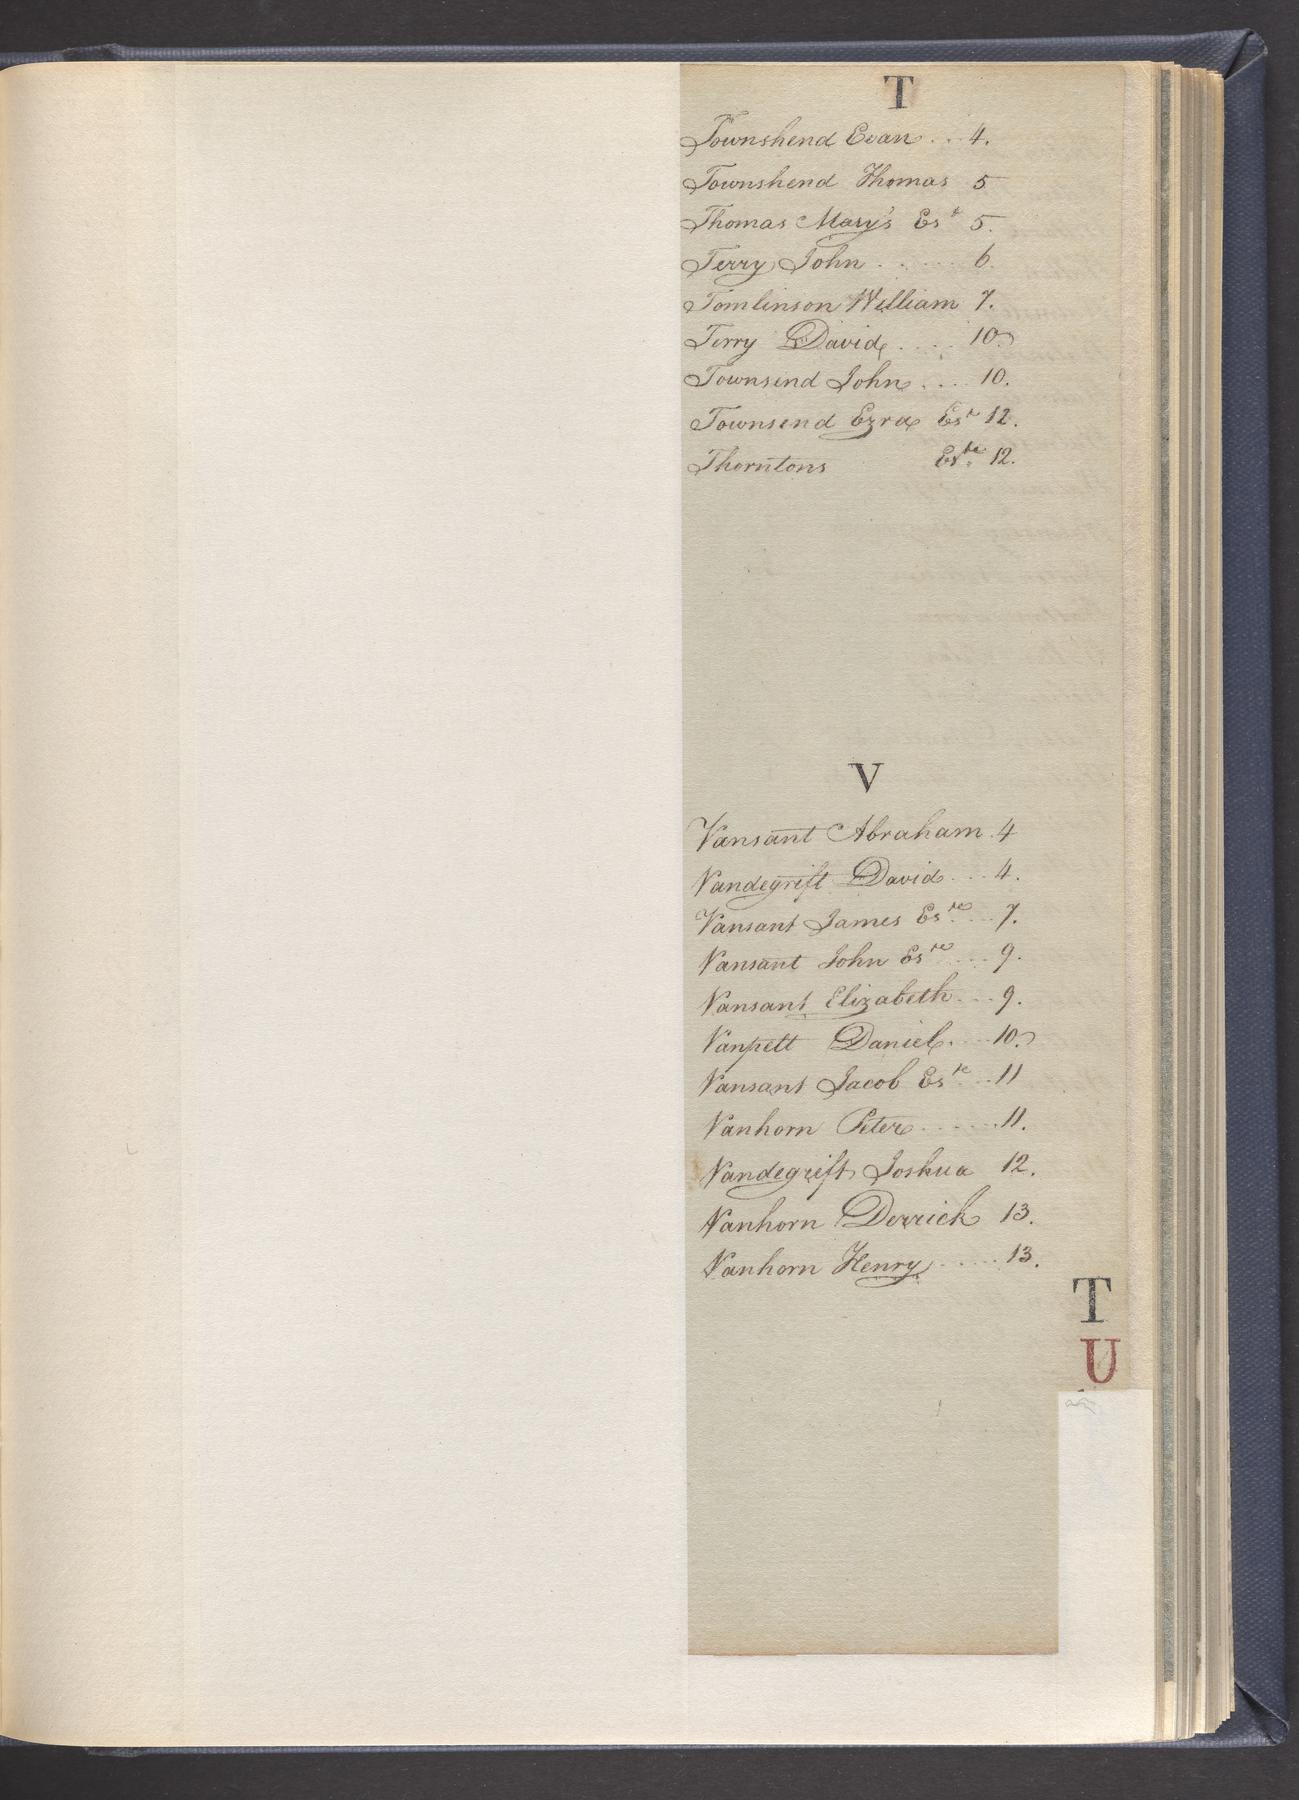 T
Townshend Evan . . . 4.
Townshend Thomas 5
Thomas Mary's Est 5.
Terry John . . . . . 6.
Tomlinson William 7.
Terry David . . . . 10.
Townsend John . . . . 10.
Townsend Ezra Est 12.
Thorntons Este 12.
V
Vansant Abraham . 4
Vandegrift David . . . 4.
Vansant James Este . . . 7.
Vansant John Este . . . 9.
Vansant Elizabeth . . . 9.
Vanpelt Daniel . . . . 10.
Vansant Jacob Este . . . 11
Vanhorn Peter . . . . . . 11.
Vandegrift Joshua 12.
Vanhorn Derrick 13.
Vanhorn Henry . . . . . 13.
T
U